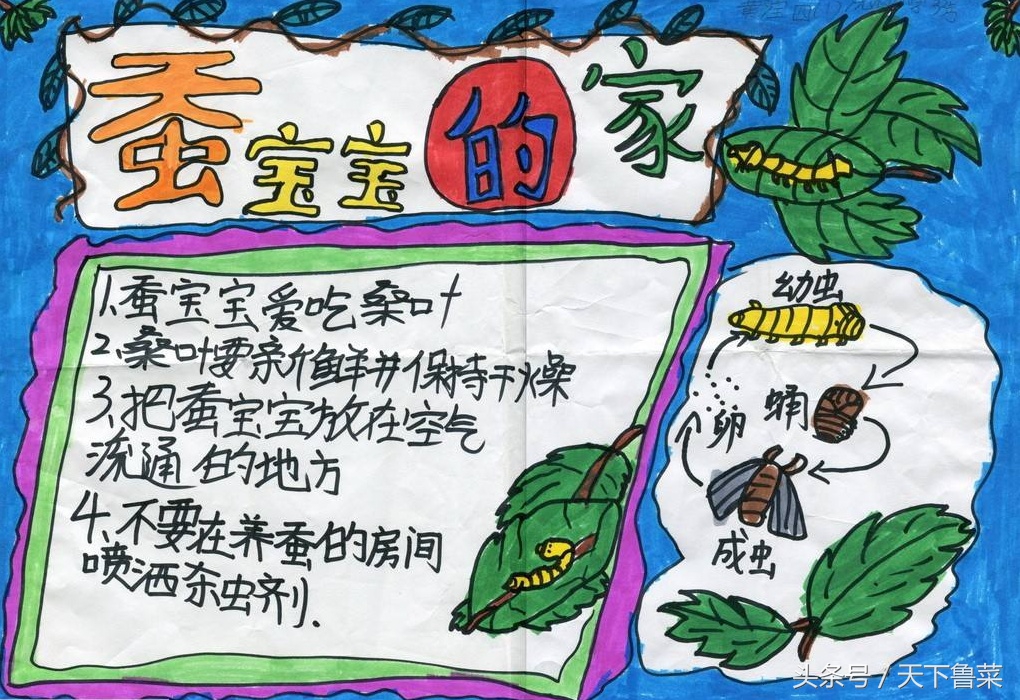 蚕宝宝的家
1.蚕宝宝爱吃桑叶
2.桑叶要新鲜并保持干燥
3.把蚕宝宝放在空气
流通的地方
4.不要在养蚕的房间
喷洒杀虫剂.
幼虫
蛹
卵
成虫
头条号/天下鲁菜